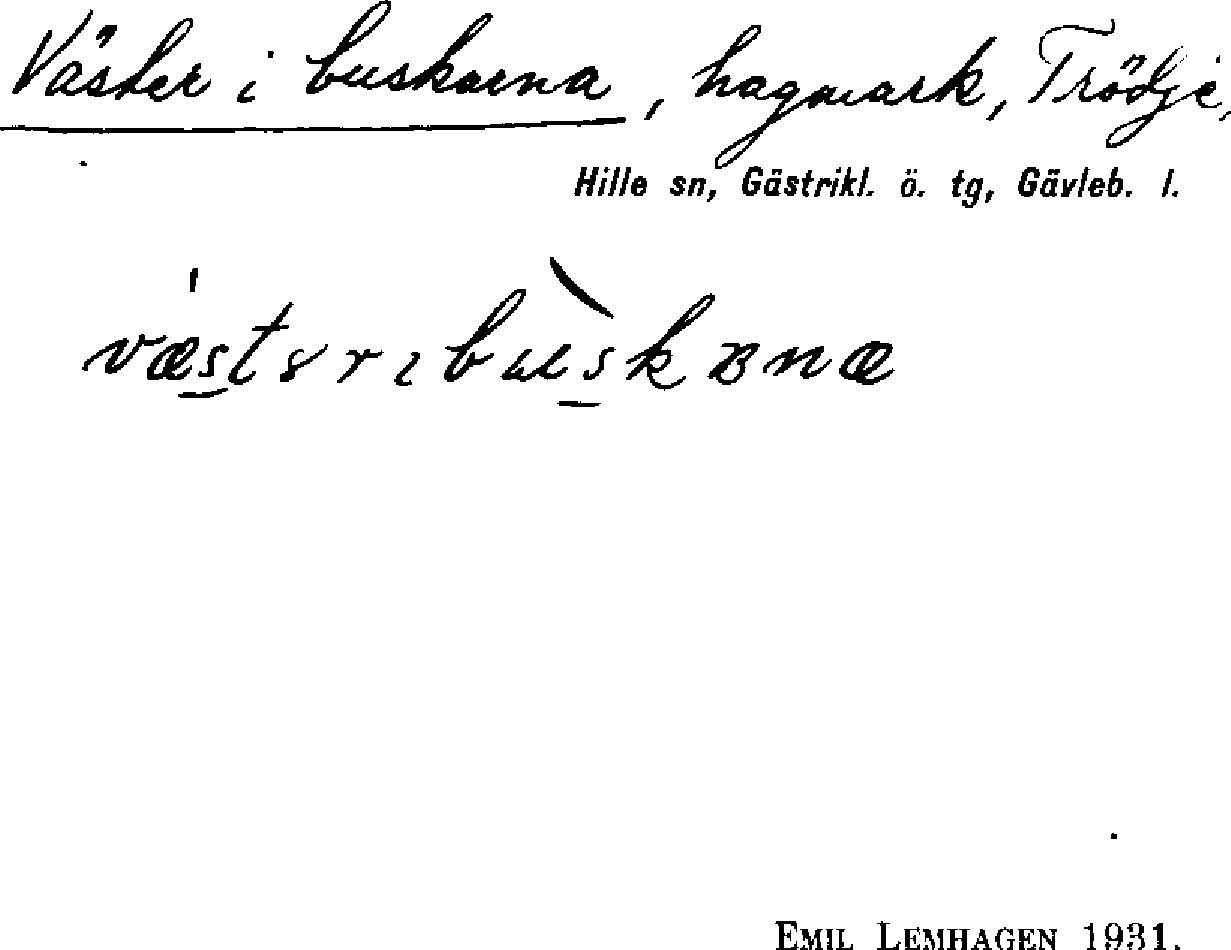 Väster i buskarna, hagmark, Trödje,
Hille sn, Gästrikl. ö. tg, Gävleb. l.
væstər ɩ buskənæ
EMIL LEMHAGEN 1931.